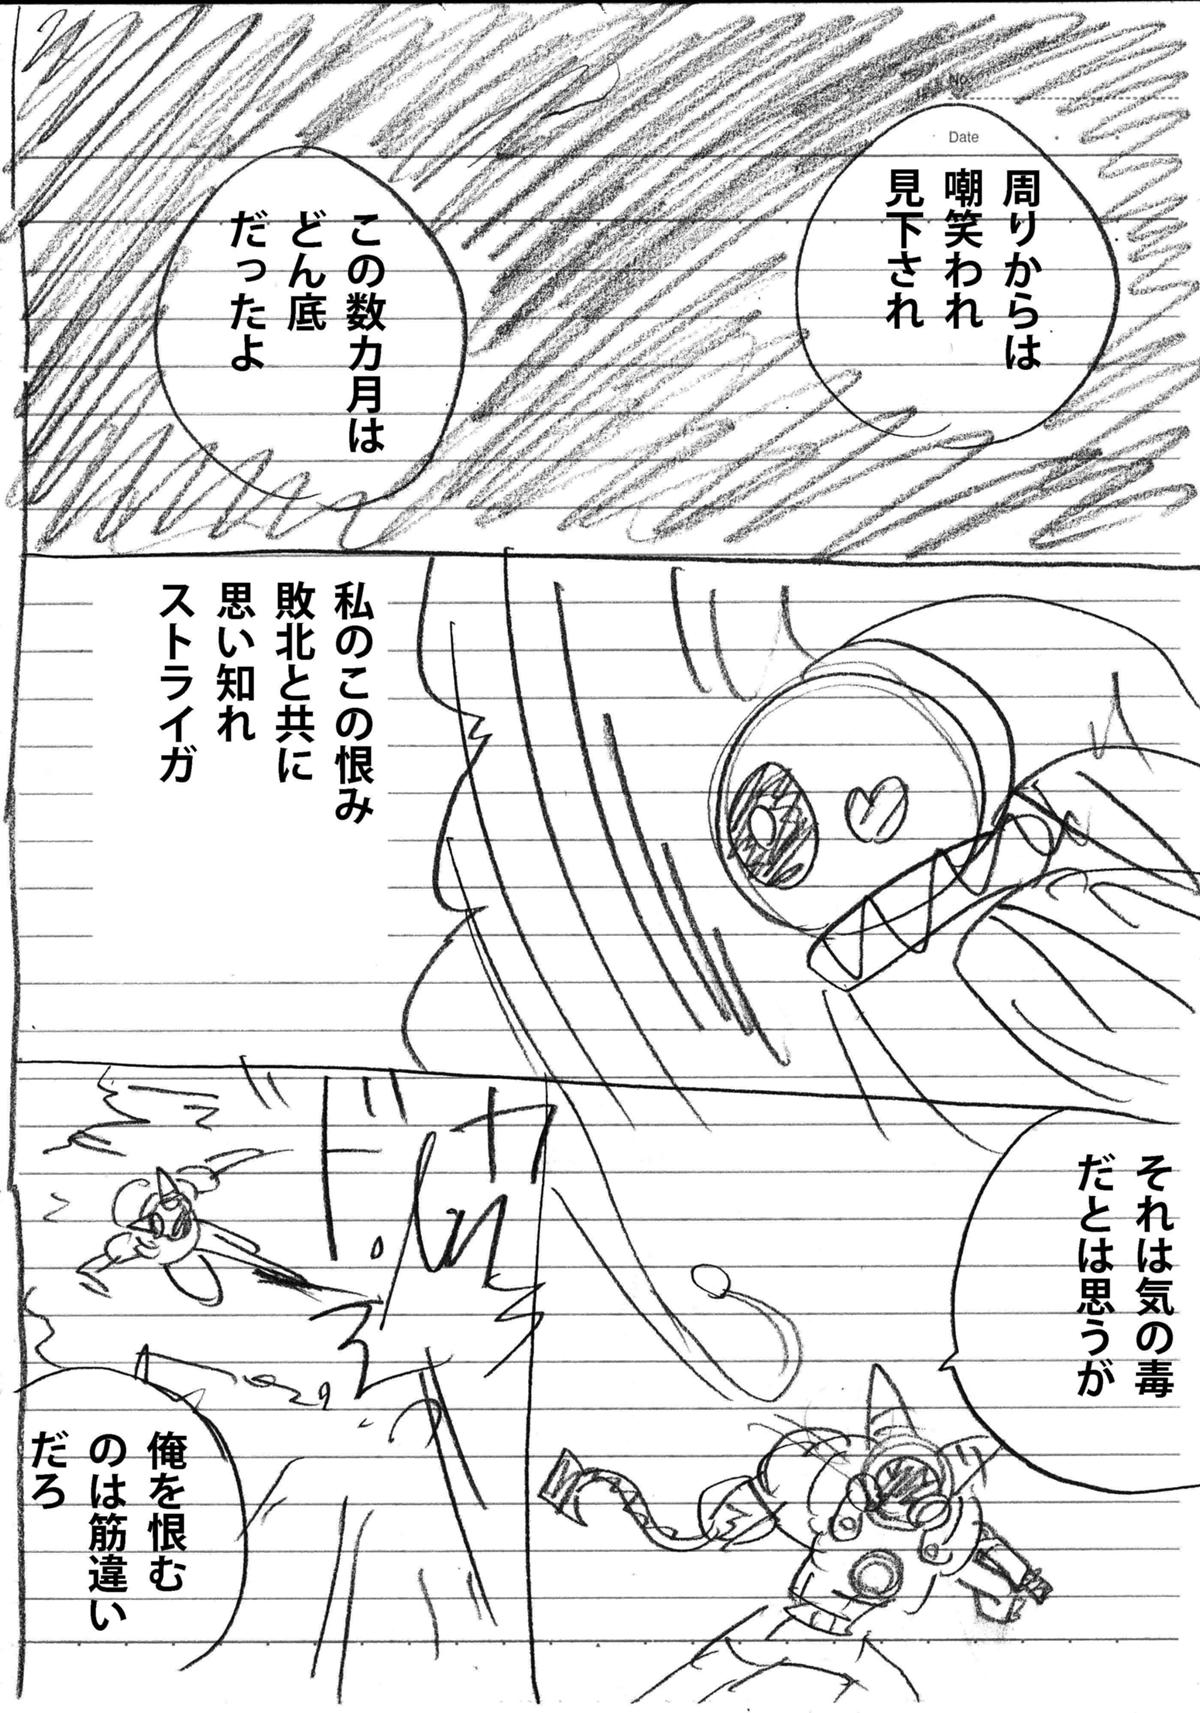 No.
Date
周りからは
嘲笑われ
見下され
この数カ月は
どん底
だったよ
私のこの恨み
敗北と共に
思い知れ
ストライガ
それは気の毒
だとは思うが
俺を恨む
のは筋違い
だろ